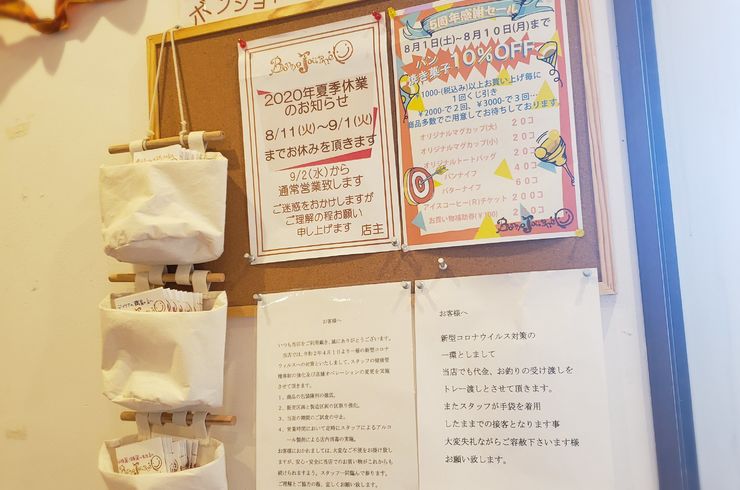 ボンジョ
Bonjour
2020年夏季休業
のお知らせ
8/11(火)～9/1(火)
までお休みを頂きます
9/2(水)から
通常営業致します
ご迷惑をおかけしますが
ご理解の程お願い
申し上げます
店主
5周年感謝セール
8月1日(土)～8月10日(月)まで
パン
焼き菓子10%OFF
¥1000-(税込み)以上お買い上げ毎に
1回くじ引き
¥2000-で2回、¥3000-で3回…
商品多数でご用意してお待ちしております
オリジナルマグカップ(大) 20コ
オリジナルマグカップ(小) 20コ
オリジナルトートバッグ 20コ
パンナイフ 40コ
バターナイフ 60コ
アイスコーヒー(R)チケット 200コ
お買い物補助券(¥100) 260コ
お客様へ
いつも当店をご利用戴き、誠にありがとうございます。
当店では、令和2年4月1日より一層の新型コロナ
ウィルスへの対策といたしまして、スタッフの健康管
理体制の強化及び店舗オペレーションの変更を実施
させて頂きます。
1、商品の包装陳列の徹底。
2、販売区画と製造区画の区割り強化。
3、当店の期間のご試食の中止。
4、営業時間において定時にスタッフによるアルコ
ール製剤による店内消毒の実施。
お客様におかれましては、大変なご不便をお掛け致し
ますが、安心・安全に当店でのお買い物がこれからも
続けられますよう、スタッフ一同臨んで参ります。
ご理解とご協力の程、宜しくお願い致します。
お客様へ
新型コロナウイルス対策の
一環としまして
当店でも代金、お釣りの受け渡しを
トレー渡しとさせて頂きます。
またスタッフが手袋を着用
したままでの接客となります事
大変失礼ながらご容赦下さいます様
お願い致します。